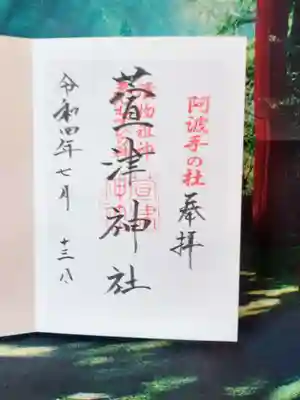 阿波手の杜
奉拝
萱津神社
令和四年七月
十三日